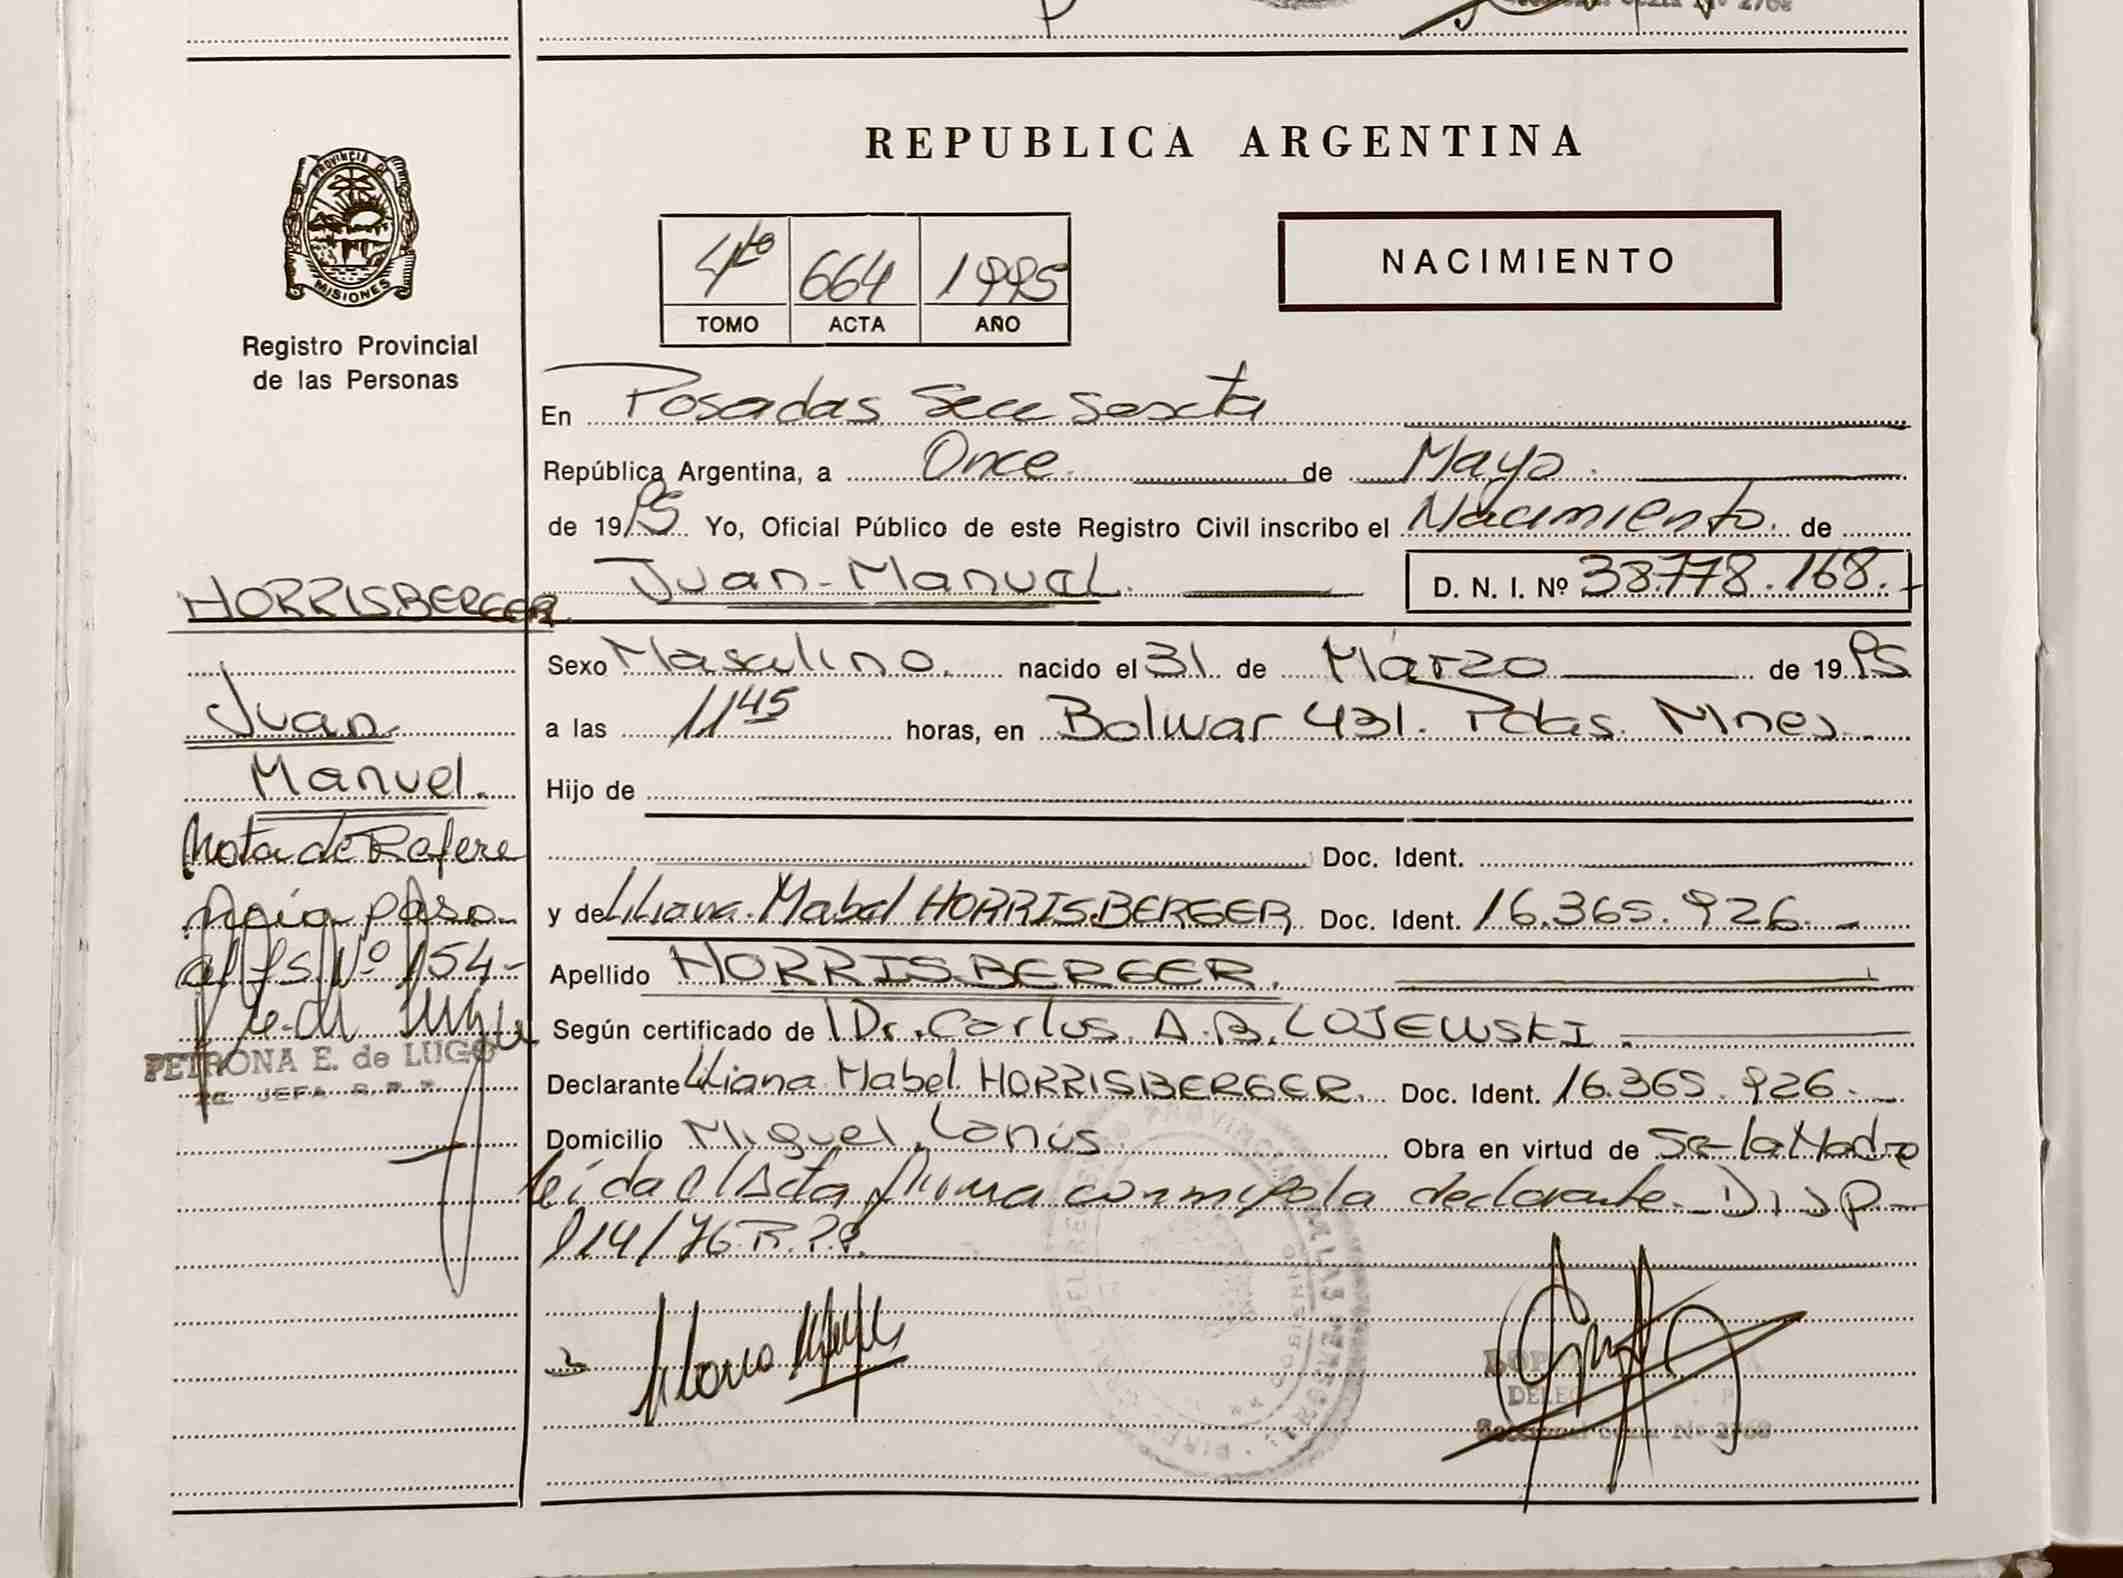 REPUBLICA ARGENTINA
PROVINCIA DE
MISIONES
Registro Provincial
de las Personas
4to 664 1995
TOMO ACTA AÑO
NACIMIENTO
En Posadas Secc Sexta
República Argentina, a Once de Mayo
de 1995 Yo, Oficial Público de este Registro Civil inscribo el Nacimiento de
Juan Manuel D. N. I. Nº 38.778.168.-
HORRISBERGER
Juan
Manuel.
Nota de Refere
ncia paso
al fs. Nº 154-
PETRONA E. de LUGO
JEFA R.P.P.
Sexo Masculino. nacido el 31 de Marzo de 1995
a las 11 45 horas, en Bolivar 431. Pdas. Mnes.
Hijo de
Doc. Ident.
y de Liliana Mabel HORRISBERGER Doc. Ident. 16.365.926.-
Apellido HORRISBERGER.
Según certificado de Dr. Carlos A.B. LOJEWSKI.
Declarante Liliana Mabel HORRISBERGER. Doc. Ident. 16.365.926.-
Domicilio Miguel Lanús Obra en virtud de Ser la Madre
Leída el Acta firma conmigo la declarante. Disp.
914/76 R.P.P.
Seccional Sexta Nº 2768